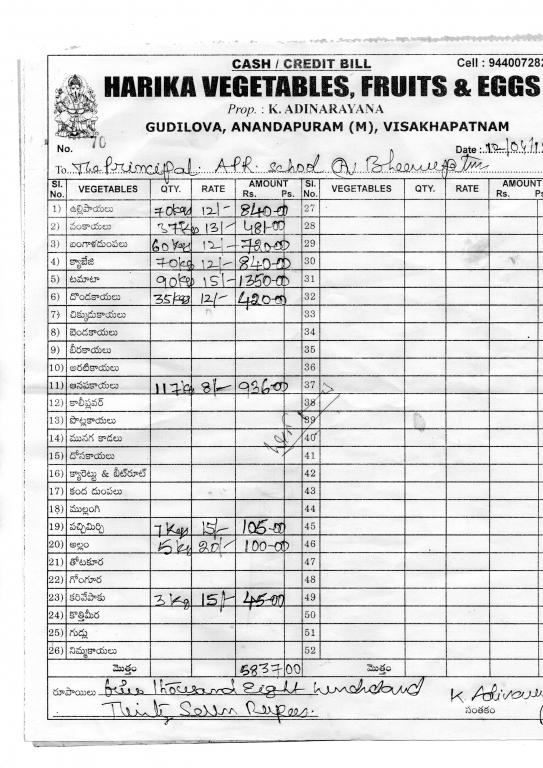 CASH / CREDIT BILL Cell : 944007282
HARIKA VEGETABLES, FRUITS & EGGS
Prop. : K. ADINARAYANA
GUDILOVA, ANANDAPURAM (M), VISAKHAPATNAM
No. 70 Date : 12/04/1
To The Principal. A.P.R. School
Sl. No. VEGETABLES QTY. RATE AMOUNT Rs. Ps. Sl. No. VEGETABLES QTY. RATE AMOUNT Rs. Ps.
1) ఉల్లిపాయలు 70kgs 12/- 840-00 27
2) వంకాయలు 37kg 13/- 481-00 28
3) బంగాళదుంపలు 60kgs 12/- 720-00 29
4) క్యాబేజి 70kg 12/- 840-00 30
5) టమాటా 90kg 15/- 1350-00 31
6) దొండకాయలు 35kgs 12/- 420-00 32
7) చిక్కుడుకాయలు 33
8) బెండకాయలు 34
9) బీరకాయలు 35
10) అరటికాయలు 36
11) ఆనపకాయలు 117kg 8/- 936-00 37
12) కాలీఫ్లవర్ 38
13) పొట్లకాయలు 39
14) మునగ కాడలు 40
15) దోసకాయలు 41
16) క్యారెట్టు & బీట్‌రూట్ 42
17) కంద దుంపలు 43
18) ముల్లంగి 44
19) పచ్చిమిర్చి 7kgs 15/- 105-00 45
20) అల్లం 5kg 20/- 100-00 46
21) తోటకూర 47
22) గోంగూర 48
23) కరివేపాకు 3kg 15/- 45-00 49
24) కొత్తిమీర 50
25) గుడ్లు 51
26) నిమ్మకాయలు 52
మొత్తం 5837.00 మొత్తం
రూపాయలు Thousand Eight
Thirty Seven Rupees.
సంతకం